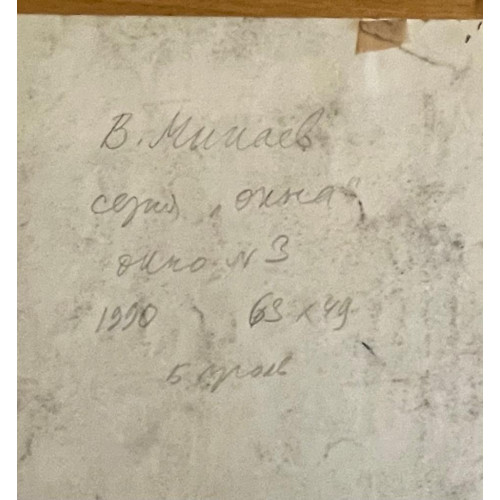 В. Минаев
серия "окна"
окно N 3
1990 63 x 49
5